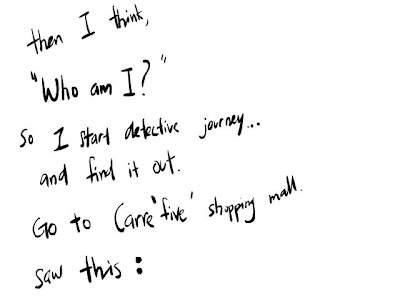 then I think,
"Who am I?"
So I start detective journey...
and find it out.
Go to Carre'five' shopping mall.
saw this :